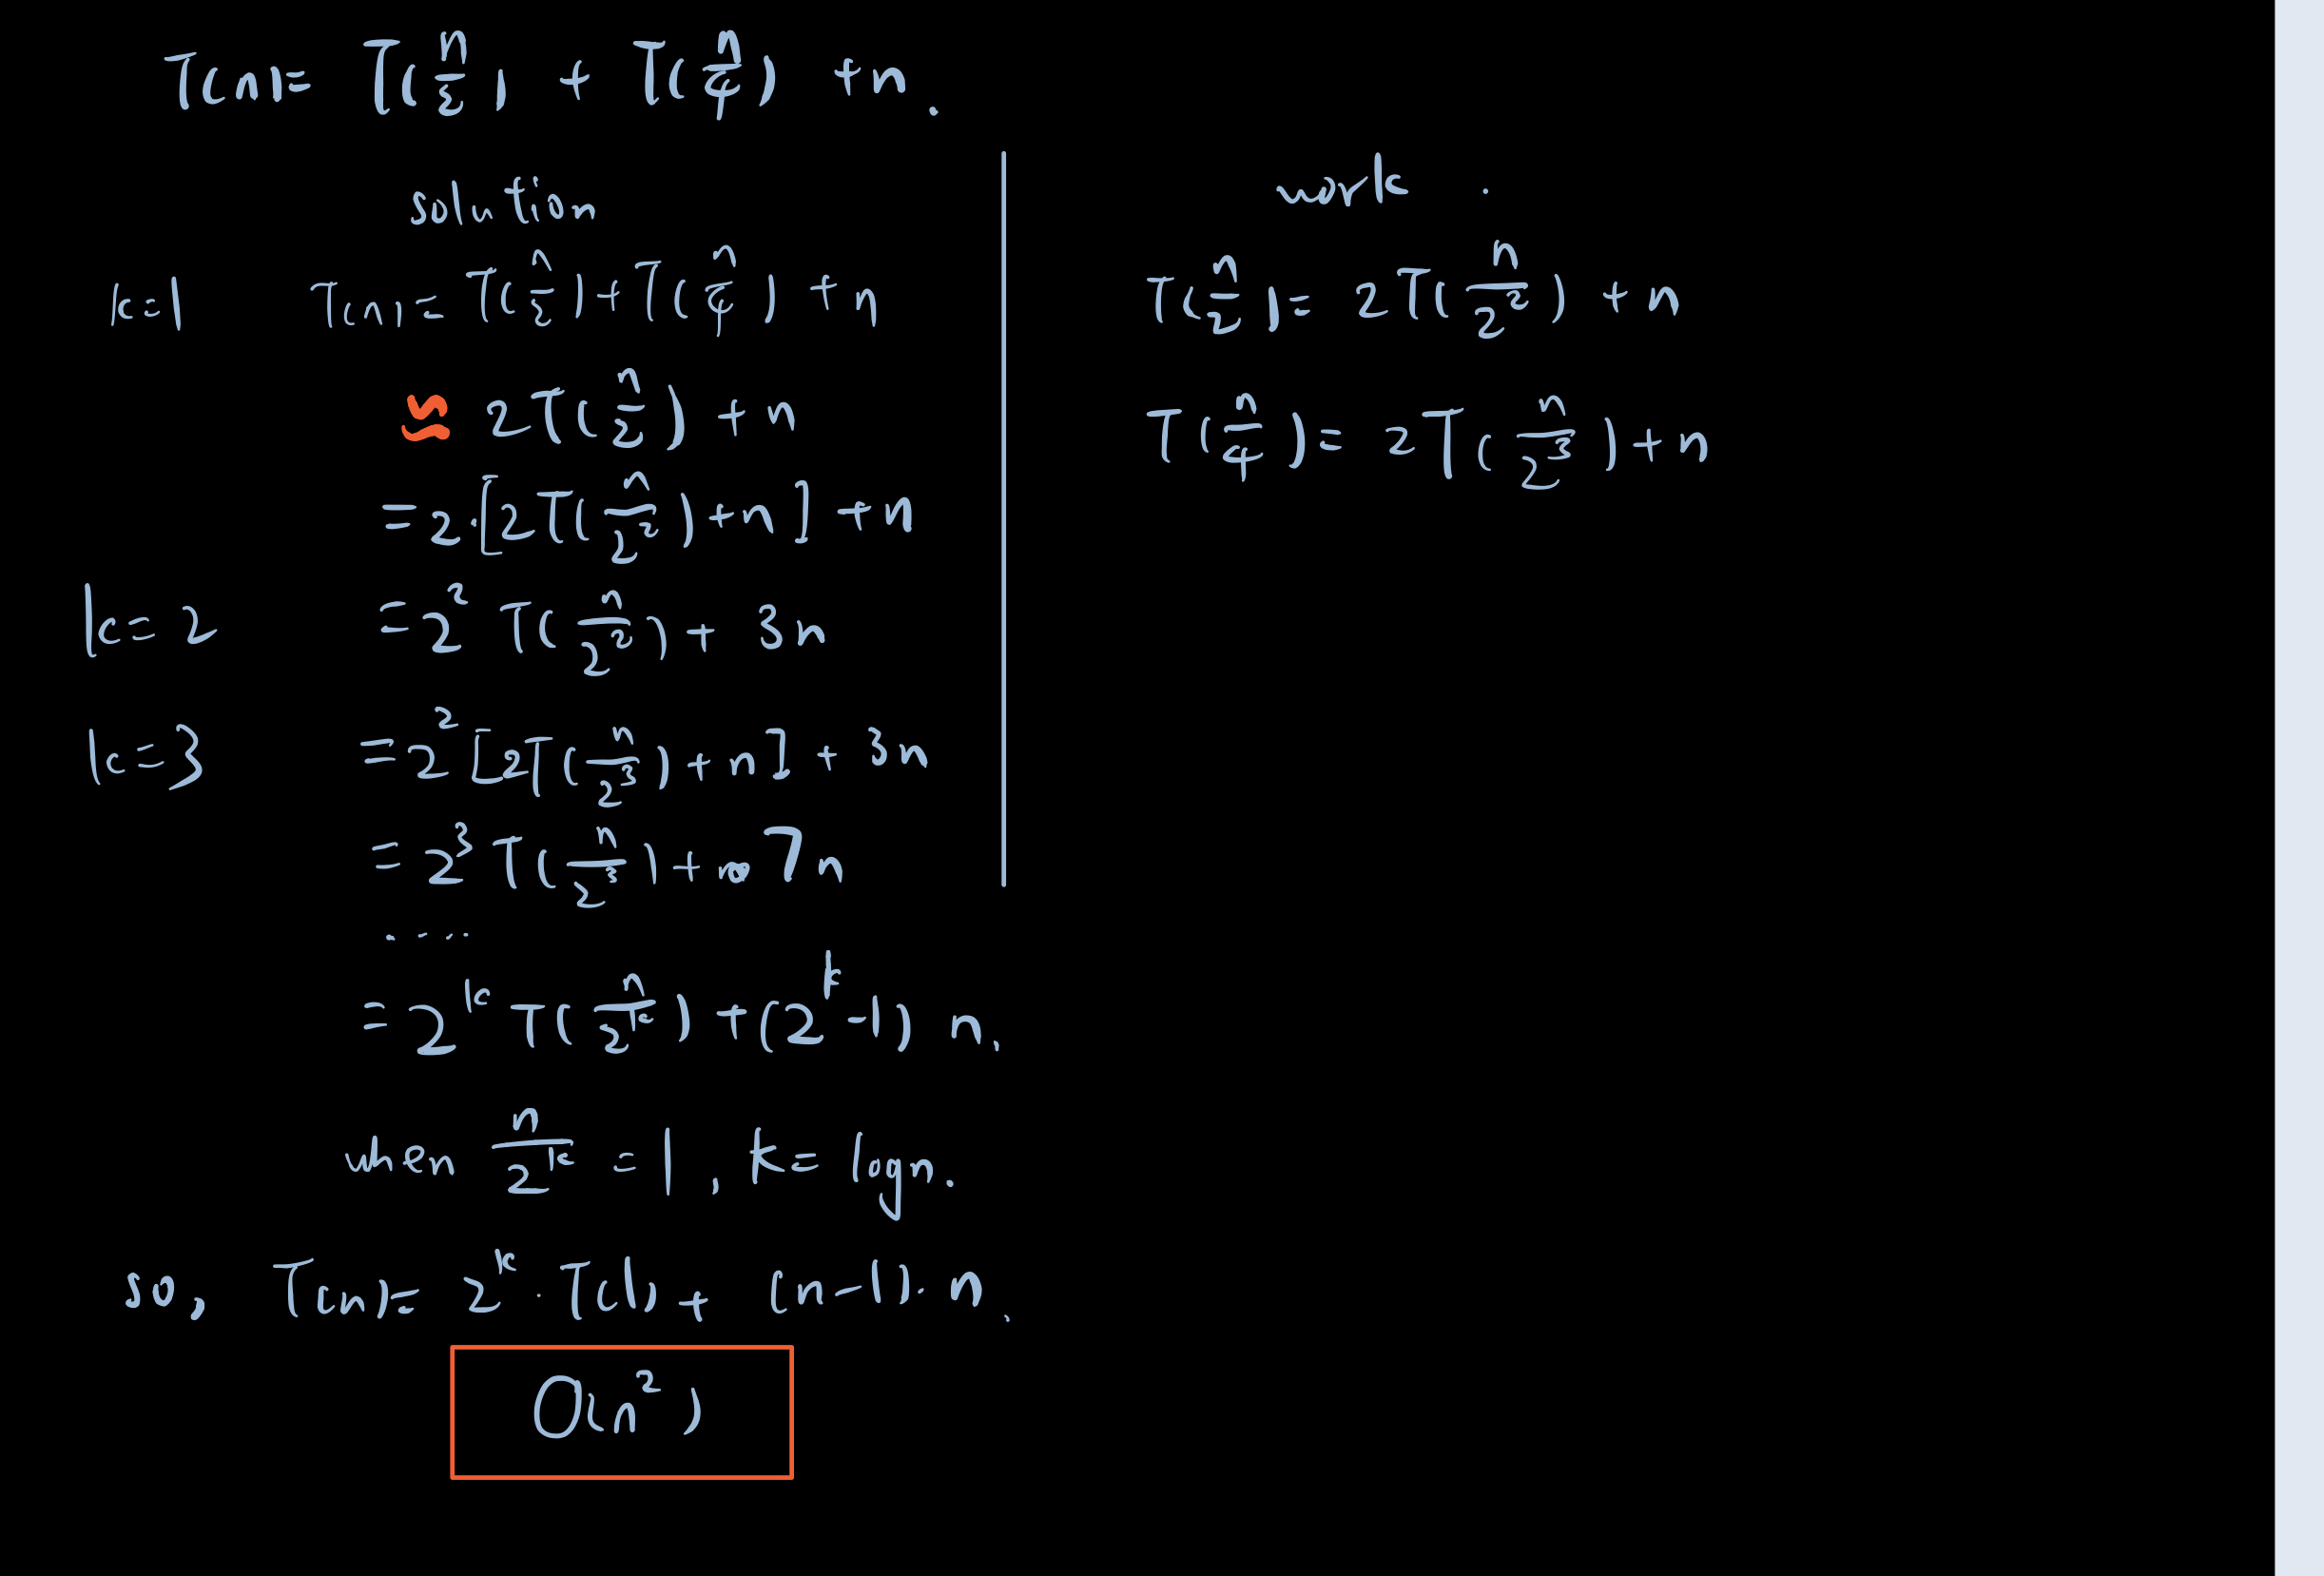 T(n) = T(n/2) + T(n/4) + n.
solution
k=1 T(n) = T(n/2) + T(n/4) + n
≈ 2T(n/2) + n
= 2·[2T(n/2²) + n] + n
k=2 = 2² T(n/2²) + 3n
k=3 = 2² [2T(n/2³) + n] + 3n
= 2³ T(n/2³) + 7n
....
= 2^k T(n/2^k) + (2^k - 1) n.
when n/2^k = 1, k = lgn.
so, T(n) = 2^k · T(1) + (n-1)·n.
O(n²)
work.
T(n/2) = 2T(n/2²) + n
T(n/4) = 2T(n/2³) + n